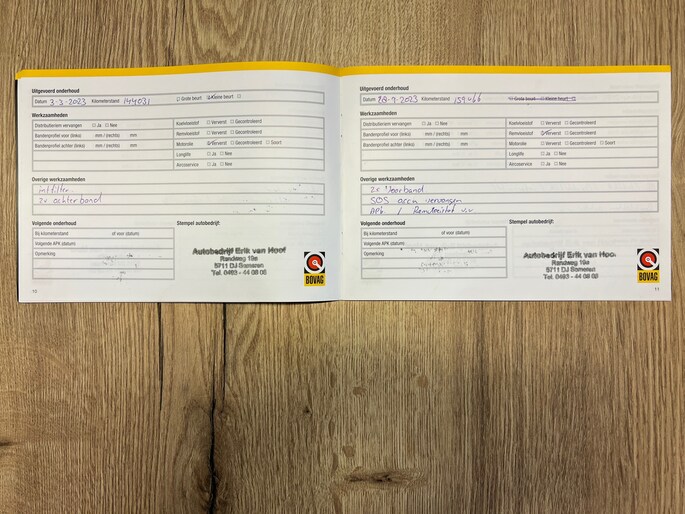 Uitgevoerd onderhoud
Datum 3-3-2023 Kilometerstand 144031 Grote beurt Kleine beurt
Werkzaamheden
Distributieriem vervangen Ja Nee
Bandenprofiel voor (links) mm / (rechts) mm
Bandenprofiel achter (links) mm / (rechts) mm
Koelvloeistof Ververst Gecontroleerd
Remvloeistof Ververst Gecontroleerd
Motorolie Ververst Gecontroleerd Soort
Longlife Ja Nee
Aircoservice Ja Nee
Overige werkzaamheden
intfilter
2x achterband
Volgende onderhoud
Bij kilometerstand of voor (datum)
Volgende APK (datum)
Opmerking
Stempel autobedrijf:
Autobedrijf Erik van Hoof
Randweg 19a
5711 DJ Someren
Tel. 0493 - 44 08 08
BOVAG
10
Uitgevoerd onderhoud
Datum 28-9-2023 Kilometerstand 159466 Grote beurt Kleine beurt
Werkzaamheden
Distributieriem vervangen Ja Nee
Bandenprofiel voor (links) mm / (rechts) mm
Bandenprofiel achter (links) mm / (rechts) mm
Koelvloeistof Ververst Gecontroleerd
Remvloeistof Ververst Gecontroleerd
Motorolie Ververst Gecontroleerd Soort
Longlife Ja Nee
Aircoservice Ja Nee
Overige werkzaamheden
2x Voorband
SOS accu vervangen
APK / Remvloeistof v.v
Volgende onderhoud
Bij kilometerstand of voor (datum)
Volgende APK (datum)
Opmerking
Stempel autobedrijf:
Autobedrijf Erik van Hoo
Randweg 19a
5711 DJ Someren
Tel. 0493 - 44 08 08
BOVAG
11